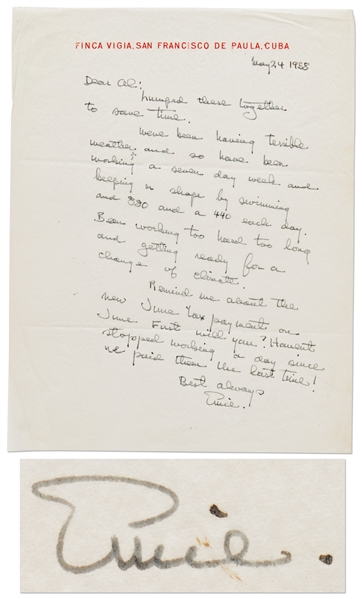 FINCA VIGIA, SAN FRANCISCO DE PAULA, CUBA
May 24 1958
Dear Al:
Lumped these together
to save time.
Weve been having terrible
weather and so have been
working a seven day week and
keeping in shape by swimming
and 880 and a 440 each day.
Been working too hard too long
and getting ready for a
change of climate.
Remind me about the
new June Tax payment on
June First will you? Havent
stopped working a day since
we paid them the last time!
Best always
Ernie.
Ernie.